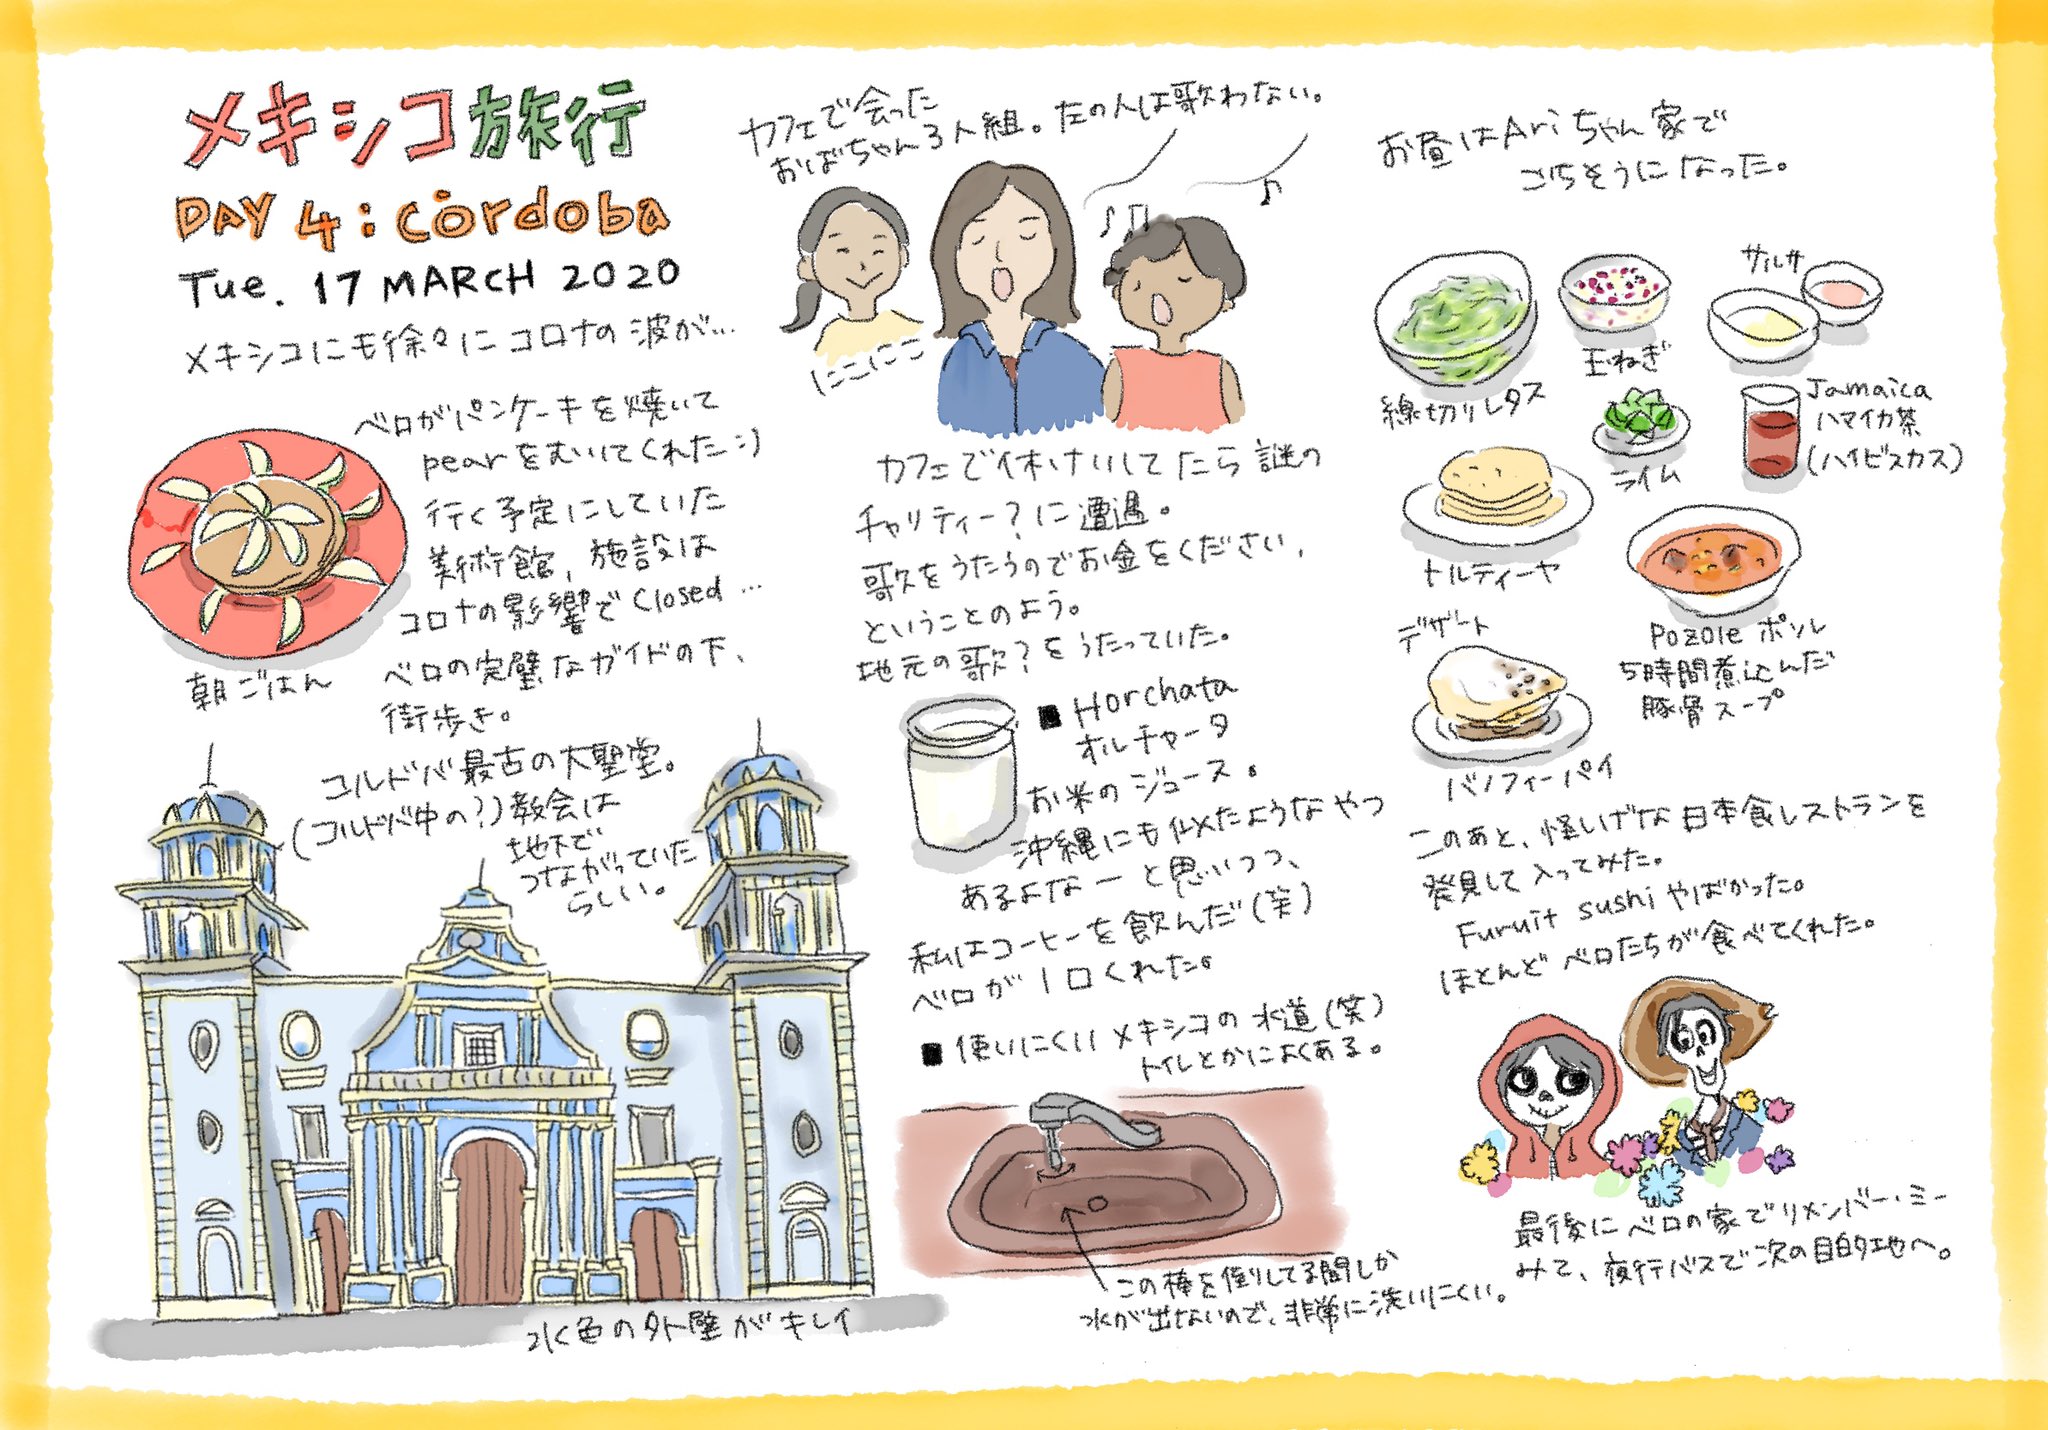 メキシコ旅行
DAY 4: Córdoba
Tue. 17 MARCH 2020
メキシコにも徐々にコロナの波が…
ベロがパンケーキを焼いて
pearをむいてくれた:)
朝ごはん
行く予定にしていた
美術館, 施設は
コロナの影響でclosed…
ベロの完璧なガイドの下、
街歩き。
コルドバ最古の大聖堂。
(コルドバ中の?)教会は
地下で
つながっていた
らしい。
水色の外壁がキレイ
カフェで会った
おばちゃん3人組。左の人は歌わない。
にこにこ
カフェで休けいしてたら謎の
チャリティー?に遭遇。
歌をうたうのでお金をください,
ということのよう。
地元の歌?をうたっていた。
■ Horchata
オルチャータ
お米のジュース。
沖縄にも似たようなやつ
あるよなーと思いつつ、
私はコーヒーを飲んだ(笑)
ベロが1口くれた。
■ 使いにくいメキシコの水道(笑)
トイレとかによくある。
この棒を倒してる間しか
水が出ないので、非常に洗いにくい。
お昼はAriちゃん家で
ごちそうになった。
線切りレタス
玉ねぎ
サルサ
ライム
Jamaica
ハマイカ茶
(ハイビスカス)
トルティーヤ
Pozole ポソレ
5時間煮込んだ
豚骨スープ
デザート
バノフィーパイ
このあと、怪しげな日本食レストランを
発見して入ってみた。
Furuit sushiやばかった。
ほとんどベロたちが食べてくれた。
最後にベロの家でリメンバー・ミー
みて、夜行バスで次の目的地へ。